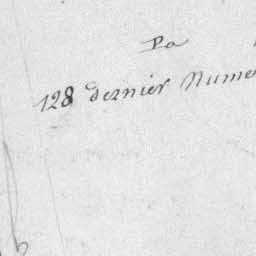 Pa
128 dernier Nume